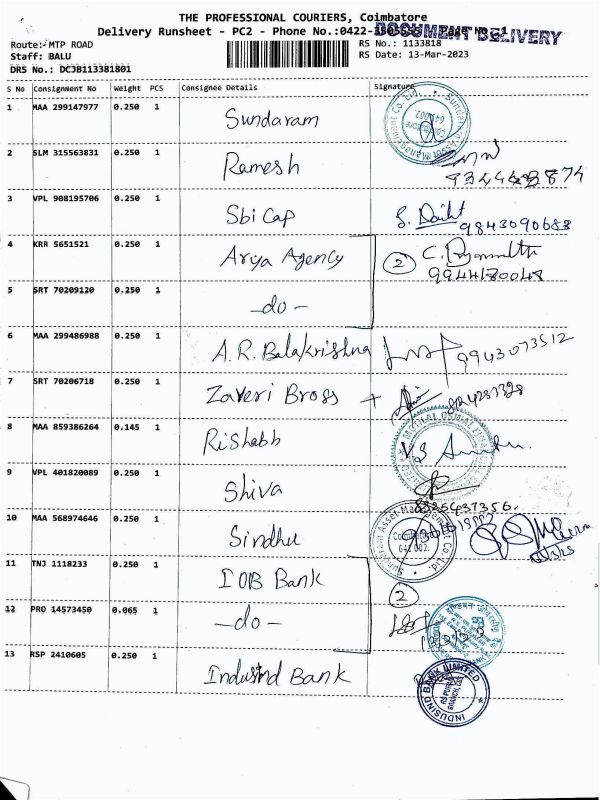 THE PROFESSIONAL COURIERS, Coimbatore
Delivery Runsheet - PC2 - Phone No.:0422- Page No. 1
DOCUMENT DELIVERY
Route: MTP ROAD
RS No.: 1133818
Staff: BALU
RS Date: 13-Mar-2023
DRS No.: DCJB113381801
S No Consignment No Weight PCS Consignee Details Signature
1 MAA 299147977 0.250 1 Sundaram
2 SLM 315563831 0.250 1 Ramesh
3 VPL 908195706 0.250 1 Sbi Cap 9843090683
4 KRR 5651521 0.250 1 Arya Agency 2
5 SRT 70209120 0.250 1 -do-
6 MAA 299486988 0.250 1 A.R. Balakrishna 9943073512
7 SRT 70206718 0.250 1 Zaveri Bross
8 MAA 859386264 0.145 1 Rishabh
9 VPL 401820089 0.250 1 Shiva
10 MAA 568974646 0.250 1 Sindhu
Sundaram Asset Management Co. Ltd.
641 002.
11 TNJ 1118233 0.250 1 IOB Bank 2
12 PRO 14573450 0.065 1 -do-
13 RSP 2410605 0.250 1 Indusind Bank
INDUSIND BANK LIMITED